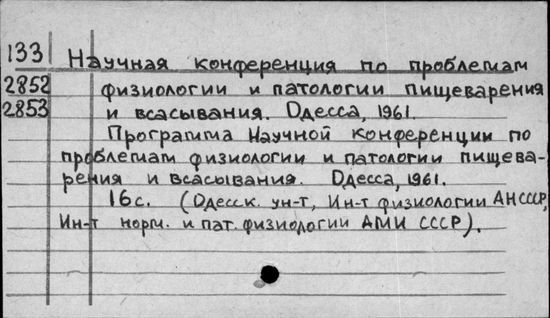 133 Научная конференция по проблемам
2852 физиологии и патологии пищеварения
2853 и всасывания. Одесса, 1961.
Программа Научной конференции по
проблемам физиологии и патологии пищева-
рения и всасывания. Одесса, 1961.
16с. (Одесск. ун-т, Ин-т физиологии АНСССР,
Ин-т норм. и пат. физиологии АМИ СССР).